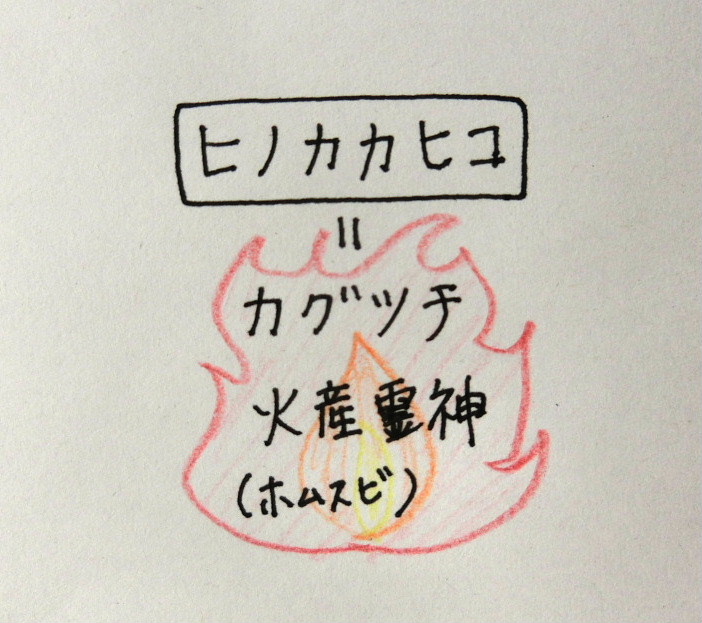 ヒノカカヒコ
＝
カグツチ
火産霊神
(ホムスビ)